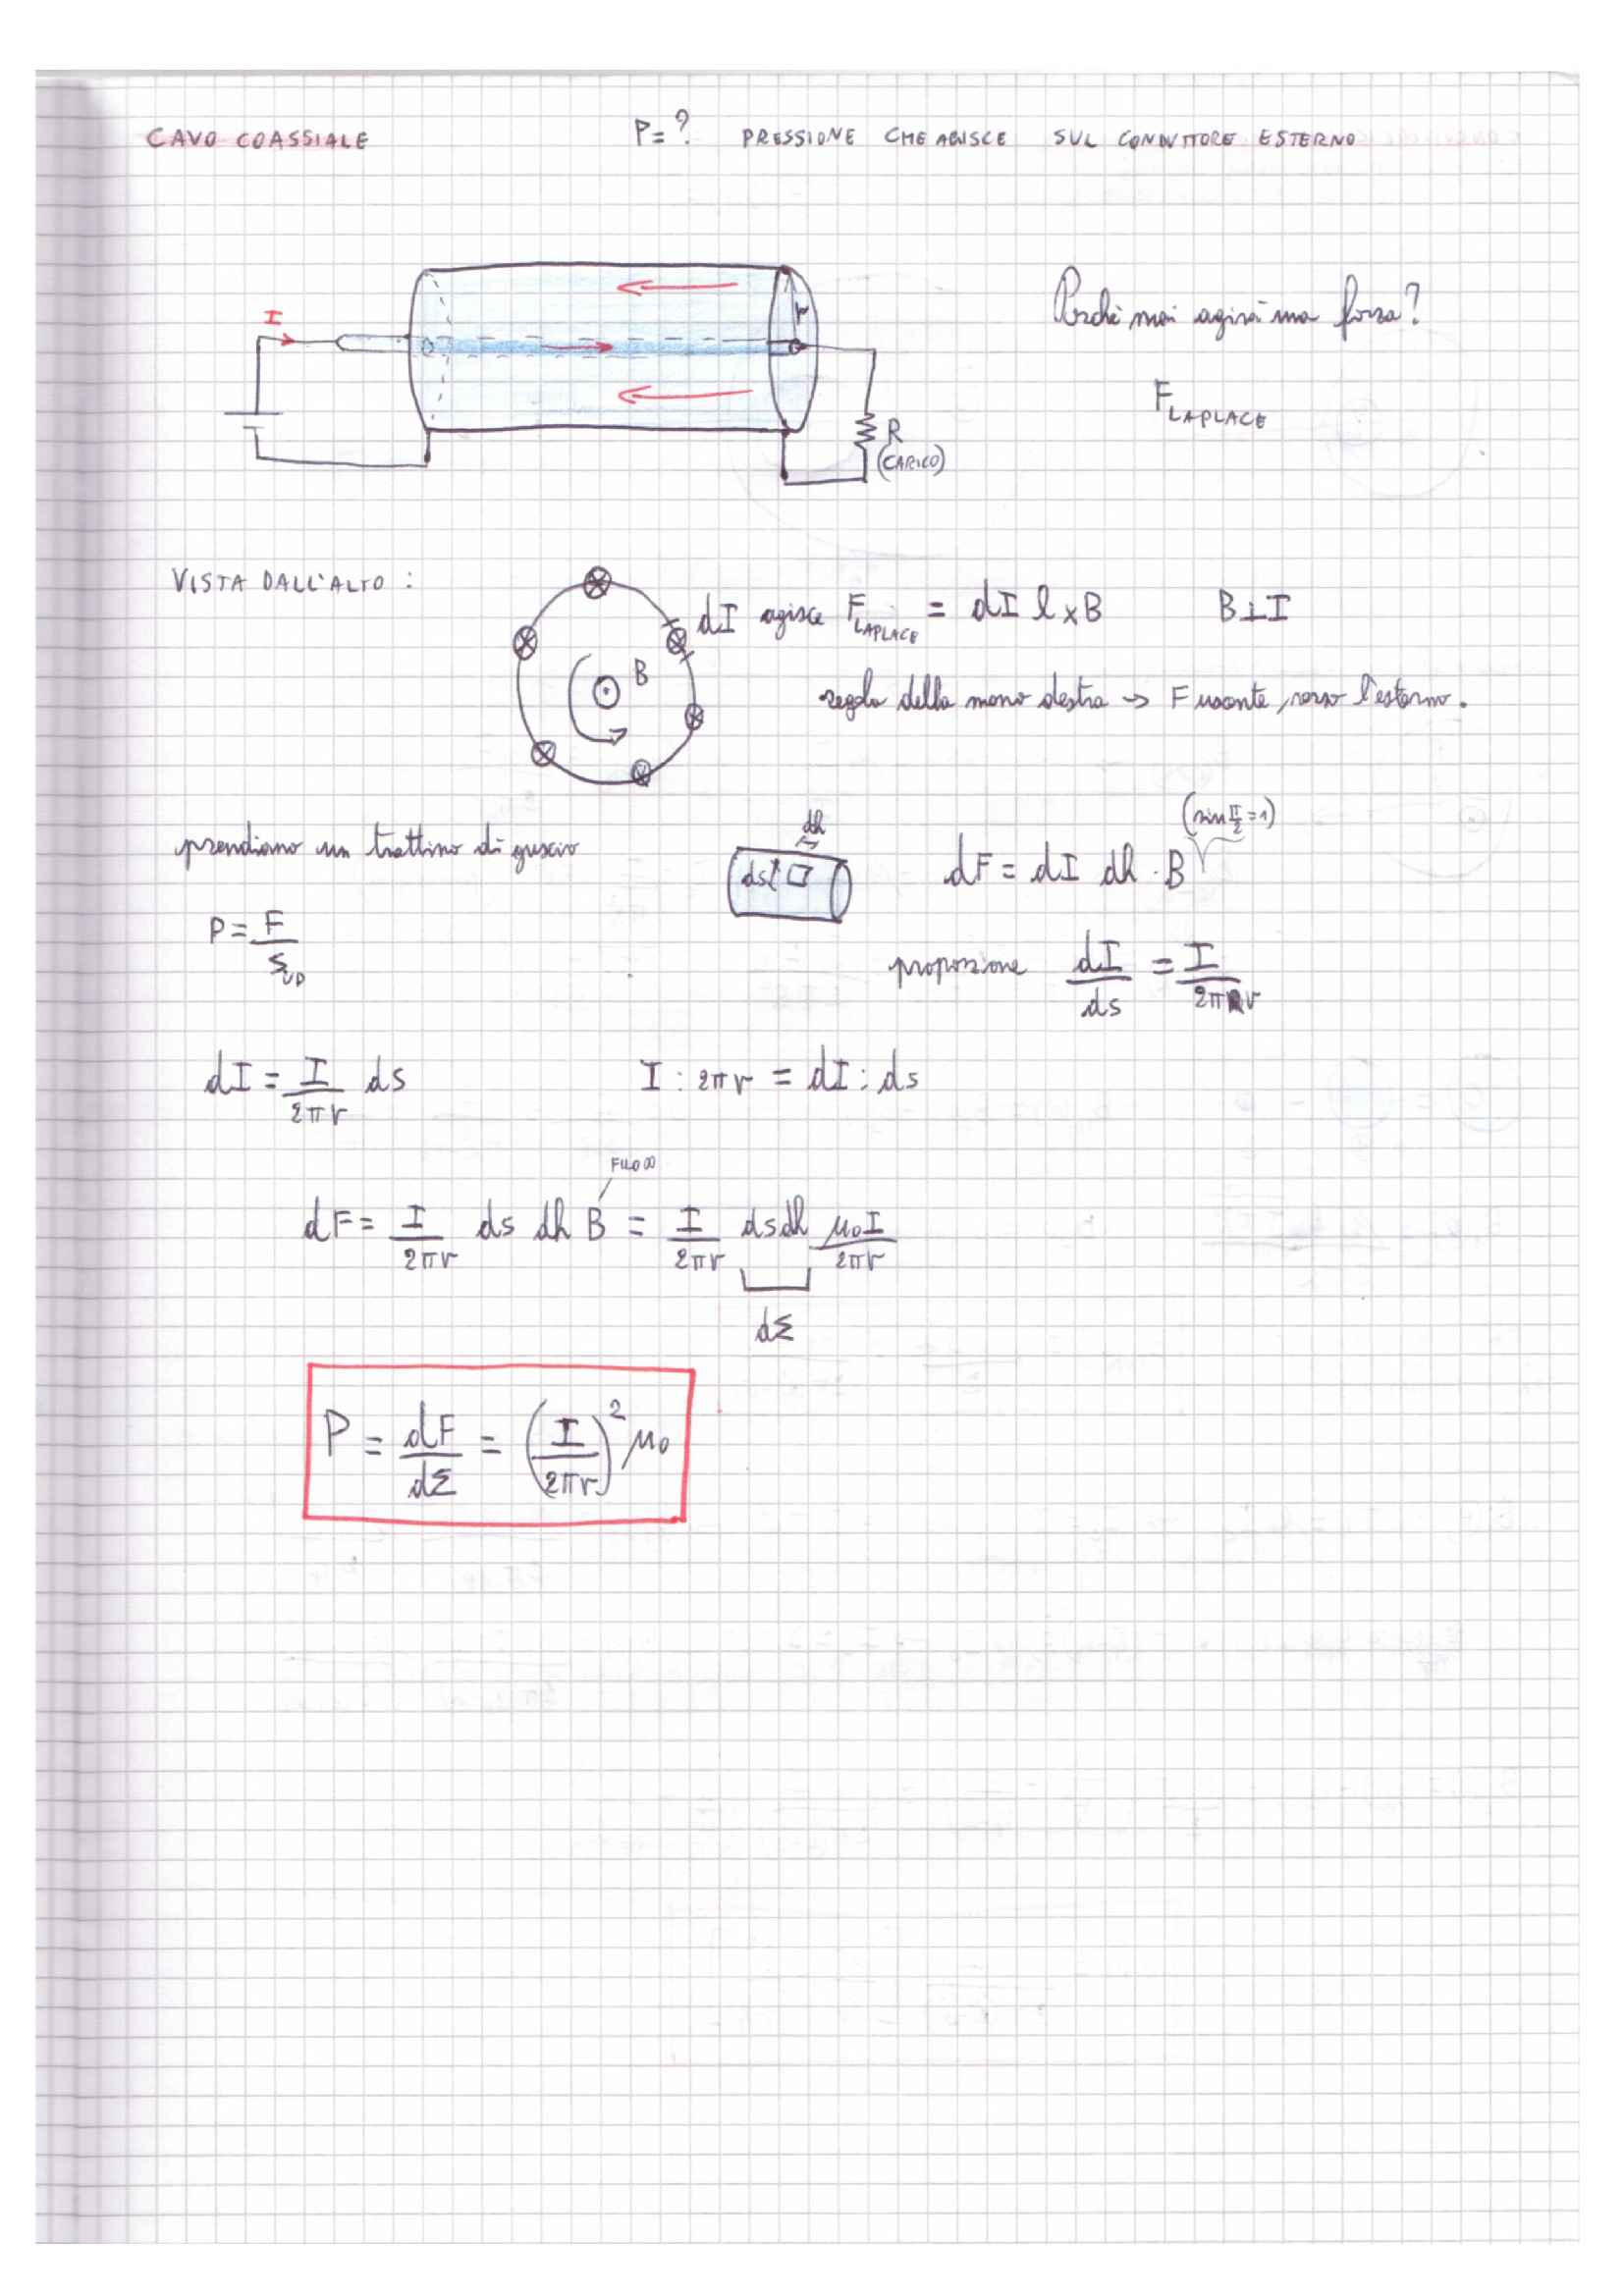 CAVO COASSIALE P=? PRESSIONE CHE AGISCE SUL CONDUTTORE ESTERNO
I
r
Perché mai agirà una forza?
F LAPLACE
R
(CARICO)
VISTA DALL'ALTO :
dI agisce F LAPLACE = dI l x B B⊥I
B
regola della mano destra → F uscente, verso l'esterno.
(sin π/2 = 1)
prendiamo un trattino di guscio
dh
ds
dF = dI dh · B
P = F/S
proporzione dI/ds = I/2πr
dI = I/2πr ds I : 2πr = dI : ds
FILO ∞
dF = I/2πr ds dh B = I/2πr ds dh μ₀I/2πr
dΣ
P = dF/dΣ = (I/2πr)² μ₀